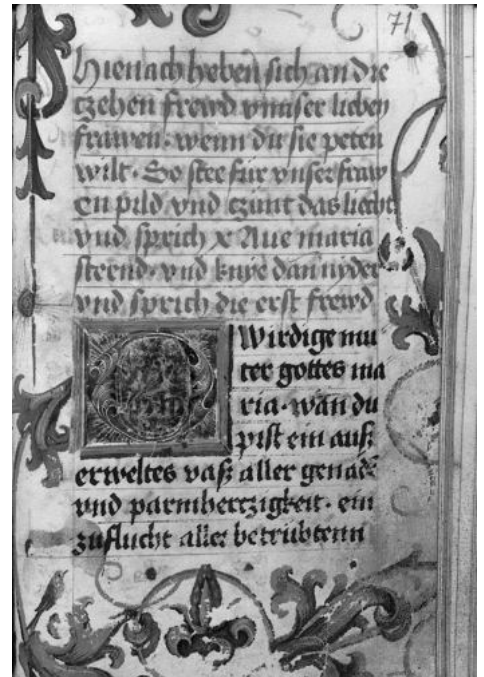 71
Hienach heben sich an die
tzehen frewd vnnser lieben
frawen. wenn du sie peten
wilt. So stee für vnser fraw
en pild vnd tzünt das liecht
vnd sprich x Aue maria
steend. vnd knye dan nyder
vnd sprich die erst frewd
O Wirdige mu
ter gottes ma
ria. wan du
pist ein auß
erweltes vaß aller genadē
vnd parmhertzigkeit. ein
zuflucht aller betrübtenn